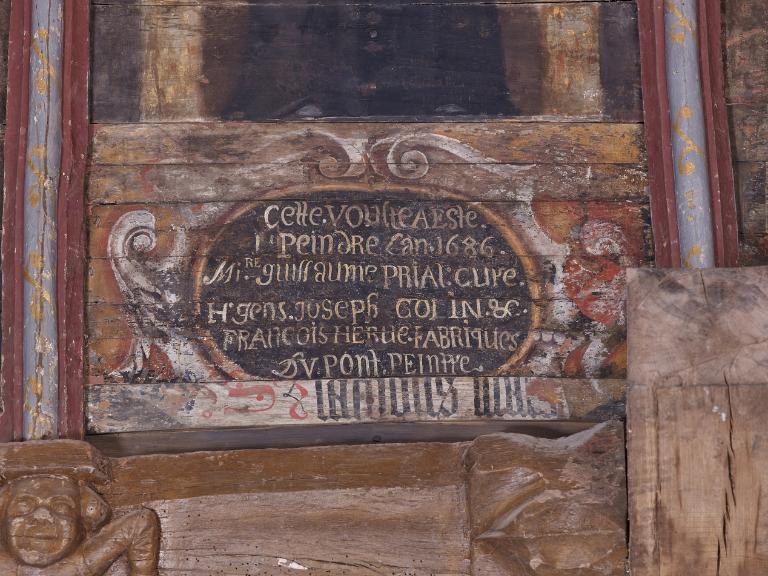 Cette.VOUlte AESte.
Peindre Lan.1686.
Mi.RE guillaume PRIAL.CURE.
Hgens.JOSEPh COlIN.&.
FRANCOIS HERUE.FABRIQUES
DV.PONt.PEINtre